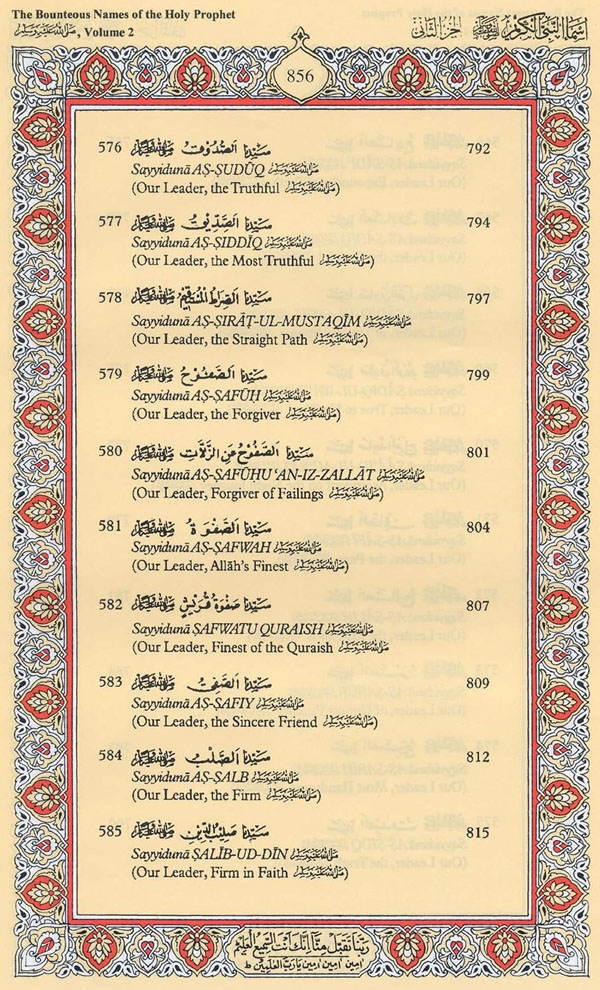 The Bounteous Names of the Holy Prophet
ﷺ, Volume 2
اسماء النبي الكريم ﷺ الجزء الثاني
856
576 سَيِّدُنَا الصَّدُوقُ ﷺ 792
Sayyidunā AṢ-ṢUDŪQ ﷺ
(Our Leader, the Truthful ﷺ)
577 سَيِّدُنَا الصِّدِّيقُ ﷺ 794
Sayyidunā AṢ-ṢIDDĪQ ﷺ
(Our Leader, the Most Truthful ﷺ)
578 سَيِّدُنَا الصِّرَاطُ الْمُسْتَقِيمُ ﷺ 797
Sayyidunā AṢ-ṢIRĀṬ-UL-MUSTAQĪM ﷺ
(Our Leader, the Straight Path ﷺ)
579 سَيِّدُنَا الصَّفُوحُ ﷺ 799
Sayyidunā AṢ-ṢAFŪḤ ﷺ
(Our Leader, the Forgiver ﷺ)
580 سَيِّدُنَا الصَّفُوحُ عَنِ الزَّلَّاتِ ﷺ 801
Sayyidunā AṢ-ṢAFŪḤU ‘AN-IZ-ZALLĀT ﷺ
(Our Leader, Forgiver of Failings ﷺ)
581 سَيِّدُنَا الصَّفْوَةُ ﷺ 804
Sayyidunā AṢ-ṢAFWAH ﷺ
(Our Leader, Allāh's Finest ﷺ)
582 سَيِّدُنَا صَفْوَةُ قُرَيْشٍ ﷺ 807
Sayyidunā ṢAFWATU QURAISH ﷺ
(Our Leader, Finest of the Quraish ﷺ)
583 سَيِّدُنَا الصَّفِيُّ ﷺ 809
Sayyidunā AṢ-ṢAFIY ﷺ
(Our Leader, the Sincere Friend ﷺ)
584 سَيِّدُنَا الصَّلْبُ ﷺ 812
Sayyidunā AṢ-ṢALB ﷺ
(Our Leader, the Firm ﷺ)
585 سَيِّدُنَا صَلِيبُ الدِّينِ ﷺ 815
Sayyidunā ṢALĪB-UD-DĪN ﷺ
(Our Leader, Firm in Faith ﷺ)
ربنا تقبل منا انك انت السميع العليم
امين امين امين يارب العلمين ط